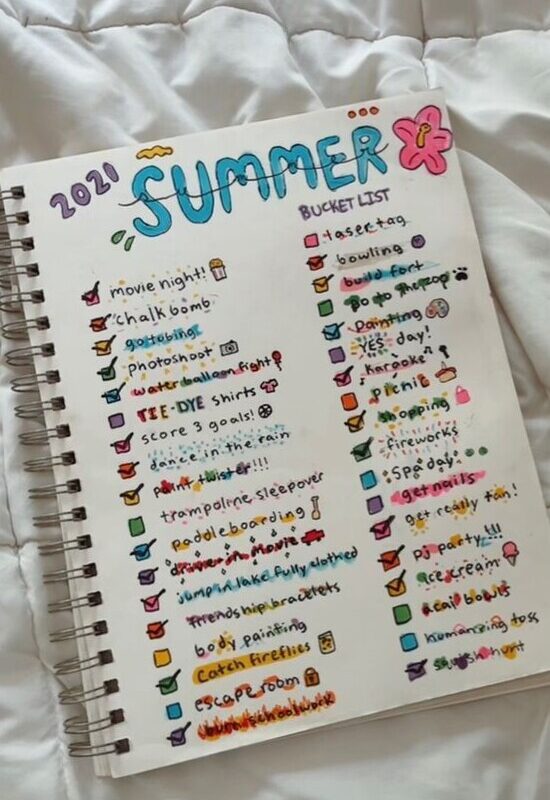 2021
SUMMER
BUCKET LIST
movie night!
chalk bomb
go tubing
photoshoot
water balloon fight
TIE-DYE shirts
score 3 goals!
dance in the rain
paint twister!!!
trampoline sleepover
paddle boarding
drive in movie
jump in lake fully clothed
friendship bracelets
body painting
Catch fireflies
escape room
burn schoolwork
laser tag
bowling
build fort
go to the zoo
painting
YES day!
karaoke
picnic
shopping
fireworks
spa day
get nails
get really tan!
pj party!!!
ice cream
acai bowls
toss
hunt